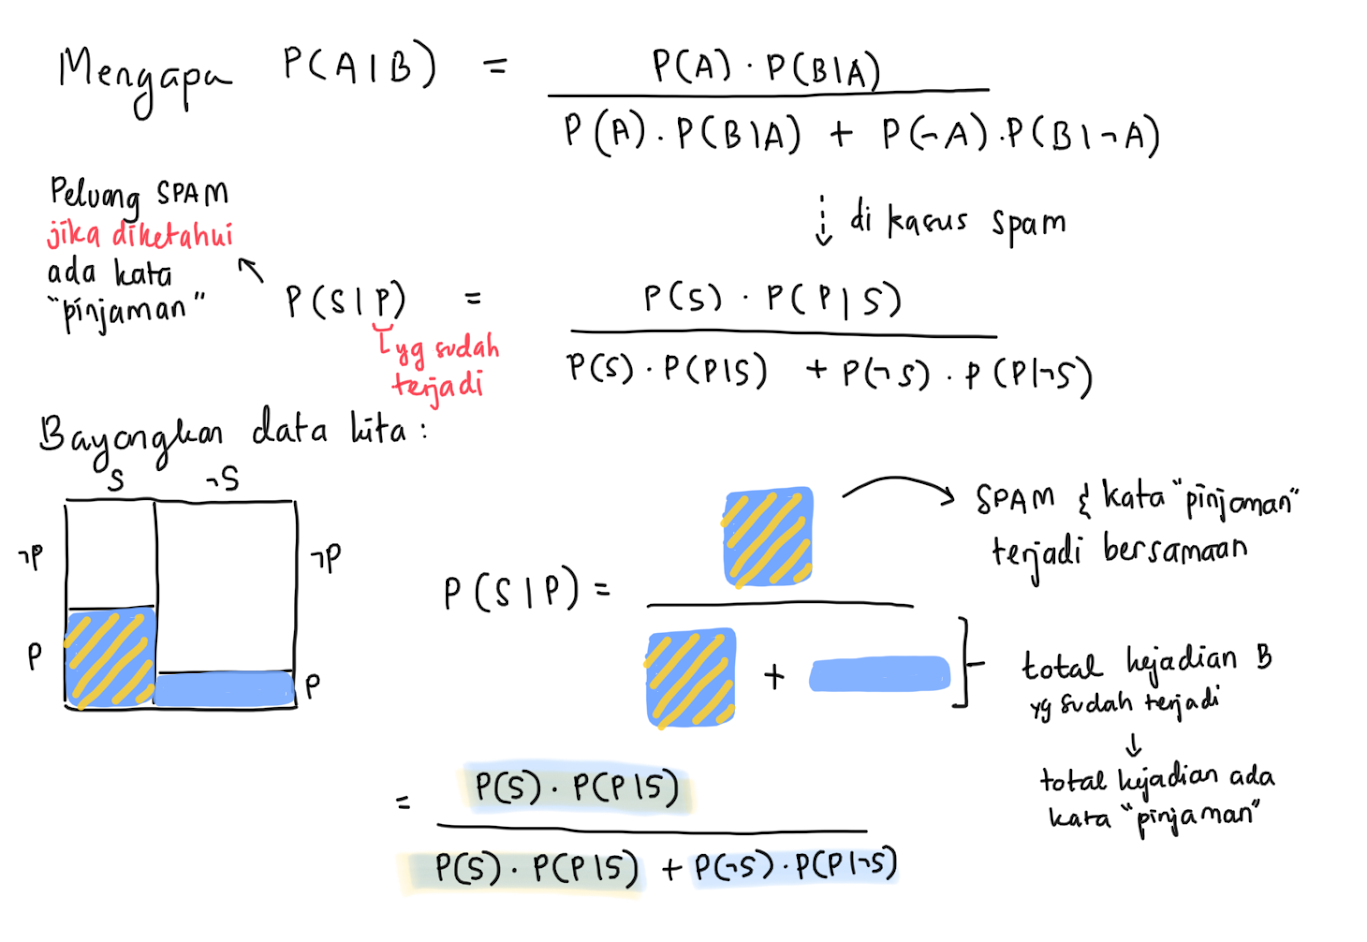 Mengapa P(A|B) = P(A) · P(B|A)
P(A) · P(B|A) + P(¬A) · P(B|¬A)
Peluang SPAM
jika diketahui
ada kata
"pinjaman"
di kasus spam
P(S|P) = P(S) · P(P|S)
P(S) · P(P|S) + P(¬S) · P(P|¬S)
yg sudah
terjadi
Bayangkan data kita :
S ¬S
¬P ¬P
P P
P(S|P) =
+
SPAM & kata "pinjaman"
terjadi bersamaan
total kejadian B
yg sudah terjadi
total kejadian ada
kata "pinjaman"
= P(S) · P(P|S)
P(S) · P(P|S) + P(¬S) · P(P|¬S)